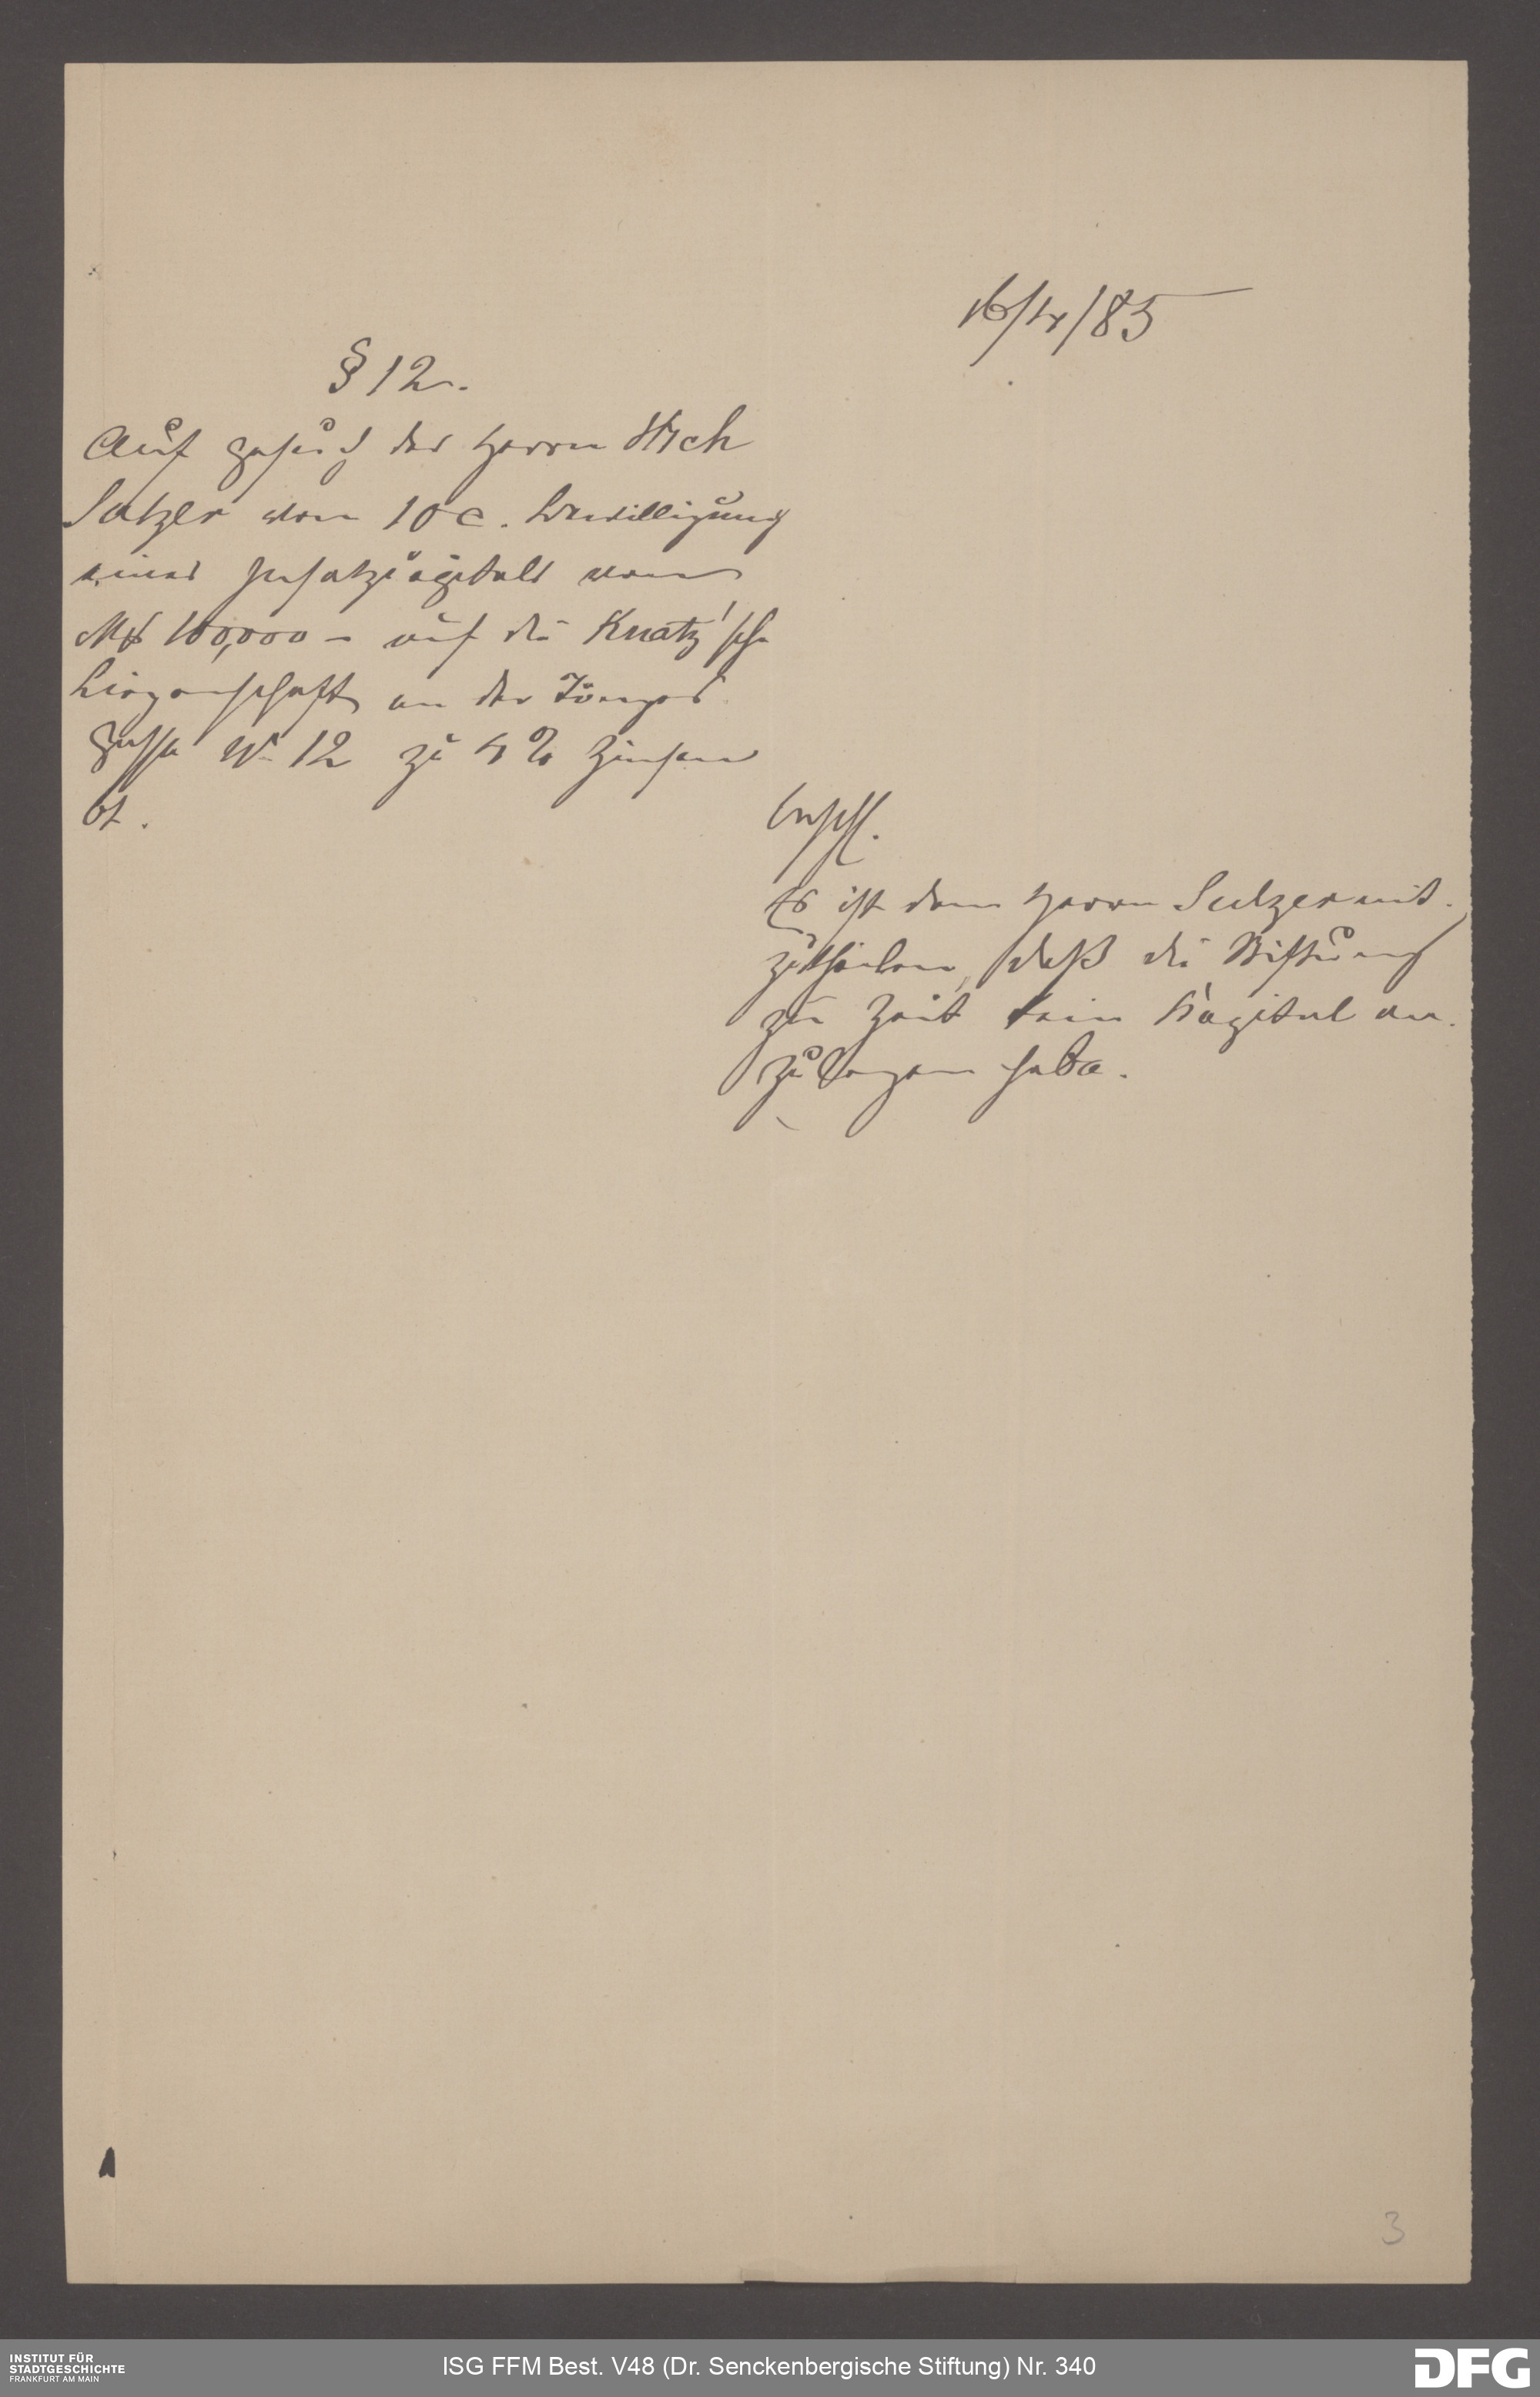 16/4/85
§ 12.
Auf Gesuch des Herrn Mich
Sulzer vom 10 c. Bewilligung
eines Insatzkapitals von
M 100,000 – auf die Knatz'sche
Liegenschaft an der Tönges
gasse No 12 zu 4 % Zinsen
Beschl.
Es ist dem Herrn Sulzer mit-
zutheilen, daß die Stiftung
zur Zeit kein Kapital an-
zulegen habe.
3
INSTITUT FÜR
STADTGESCHICHTE
FRANKFURT AM MAIN
ISG FFM Best. V48 (Dr. Senckenbergische Stiftung) Nr. 340
DFG